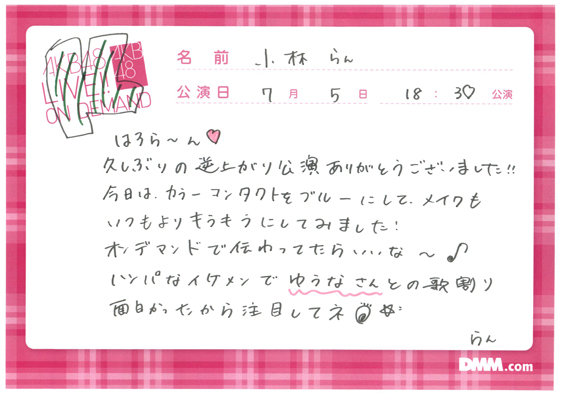 AKB48
LIVE!!
ON DEMAND
AKB
48
名前 小林 らん
公演日 7月 5日 18:30公演
はろら〜ん♡
久しぶりの逆上がり公演ありがとうございました!!
今日は、カラーコンタクトをブルーにして、メイクも
いつもよりキラキラにしてみました!
オンデマンドで伝わってたらいいな〜♪
ハンパなイケメンでゆうなさんとの歌割り
面白かったから注目してネ
らん
DMM.com